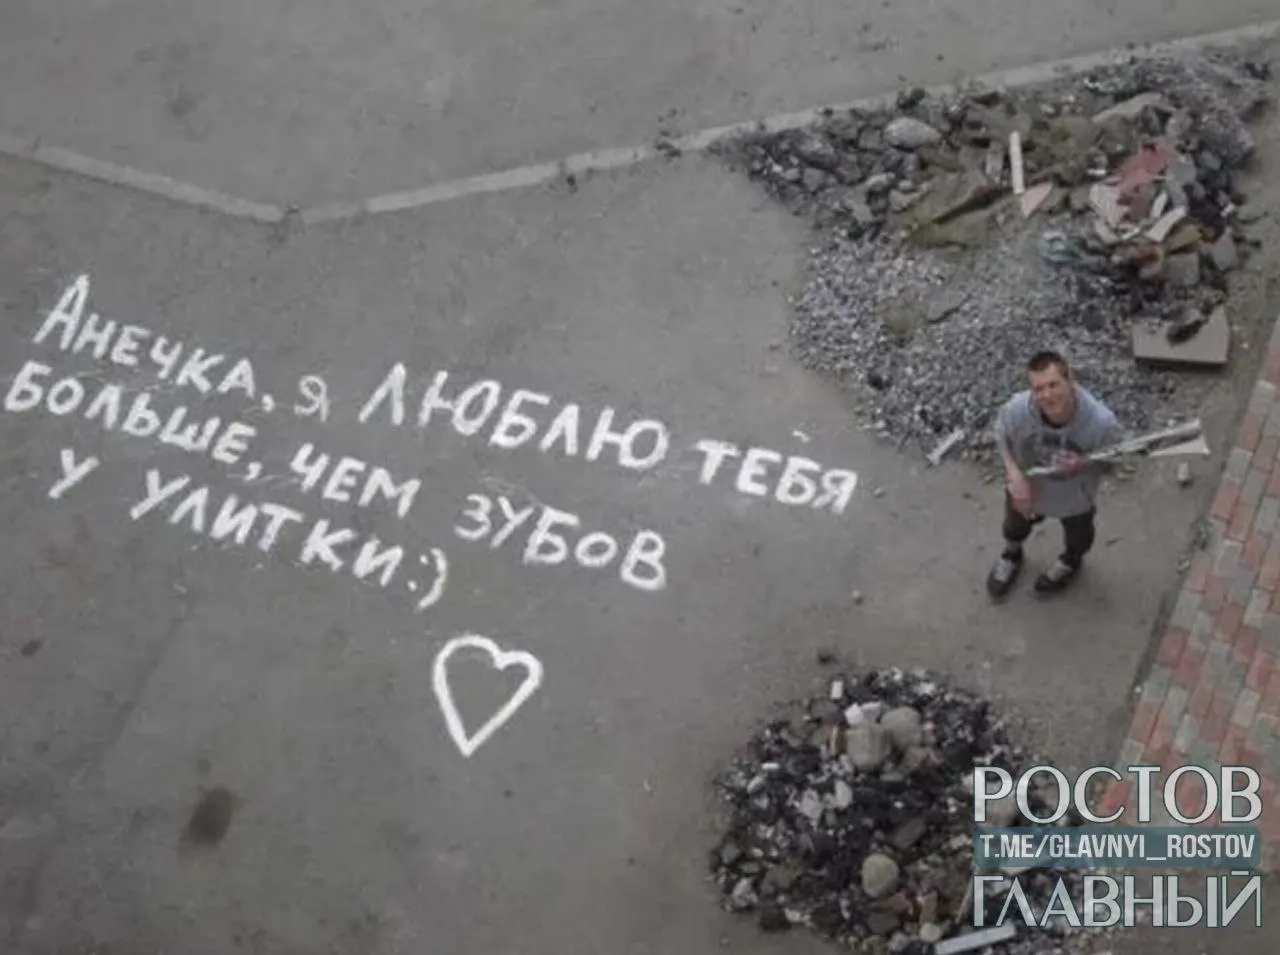 Анечка, я люблю тебя
больше, чем зубов
у улитки:)
РОСТОВ
T.ME/GLAVNYI_ROSTOV
ГЛАВНЫЙ